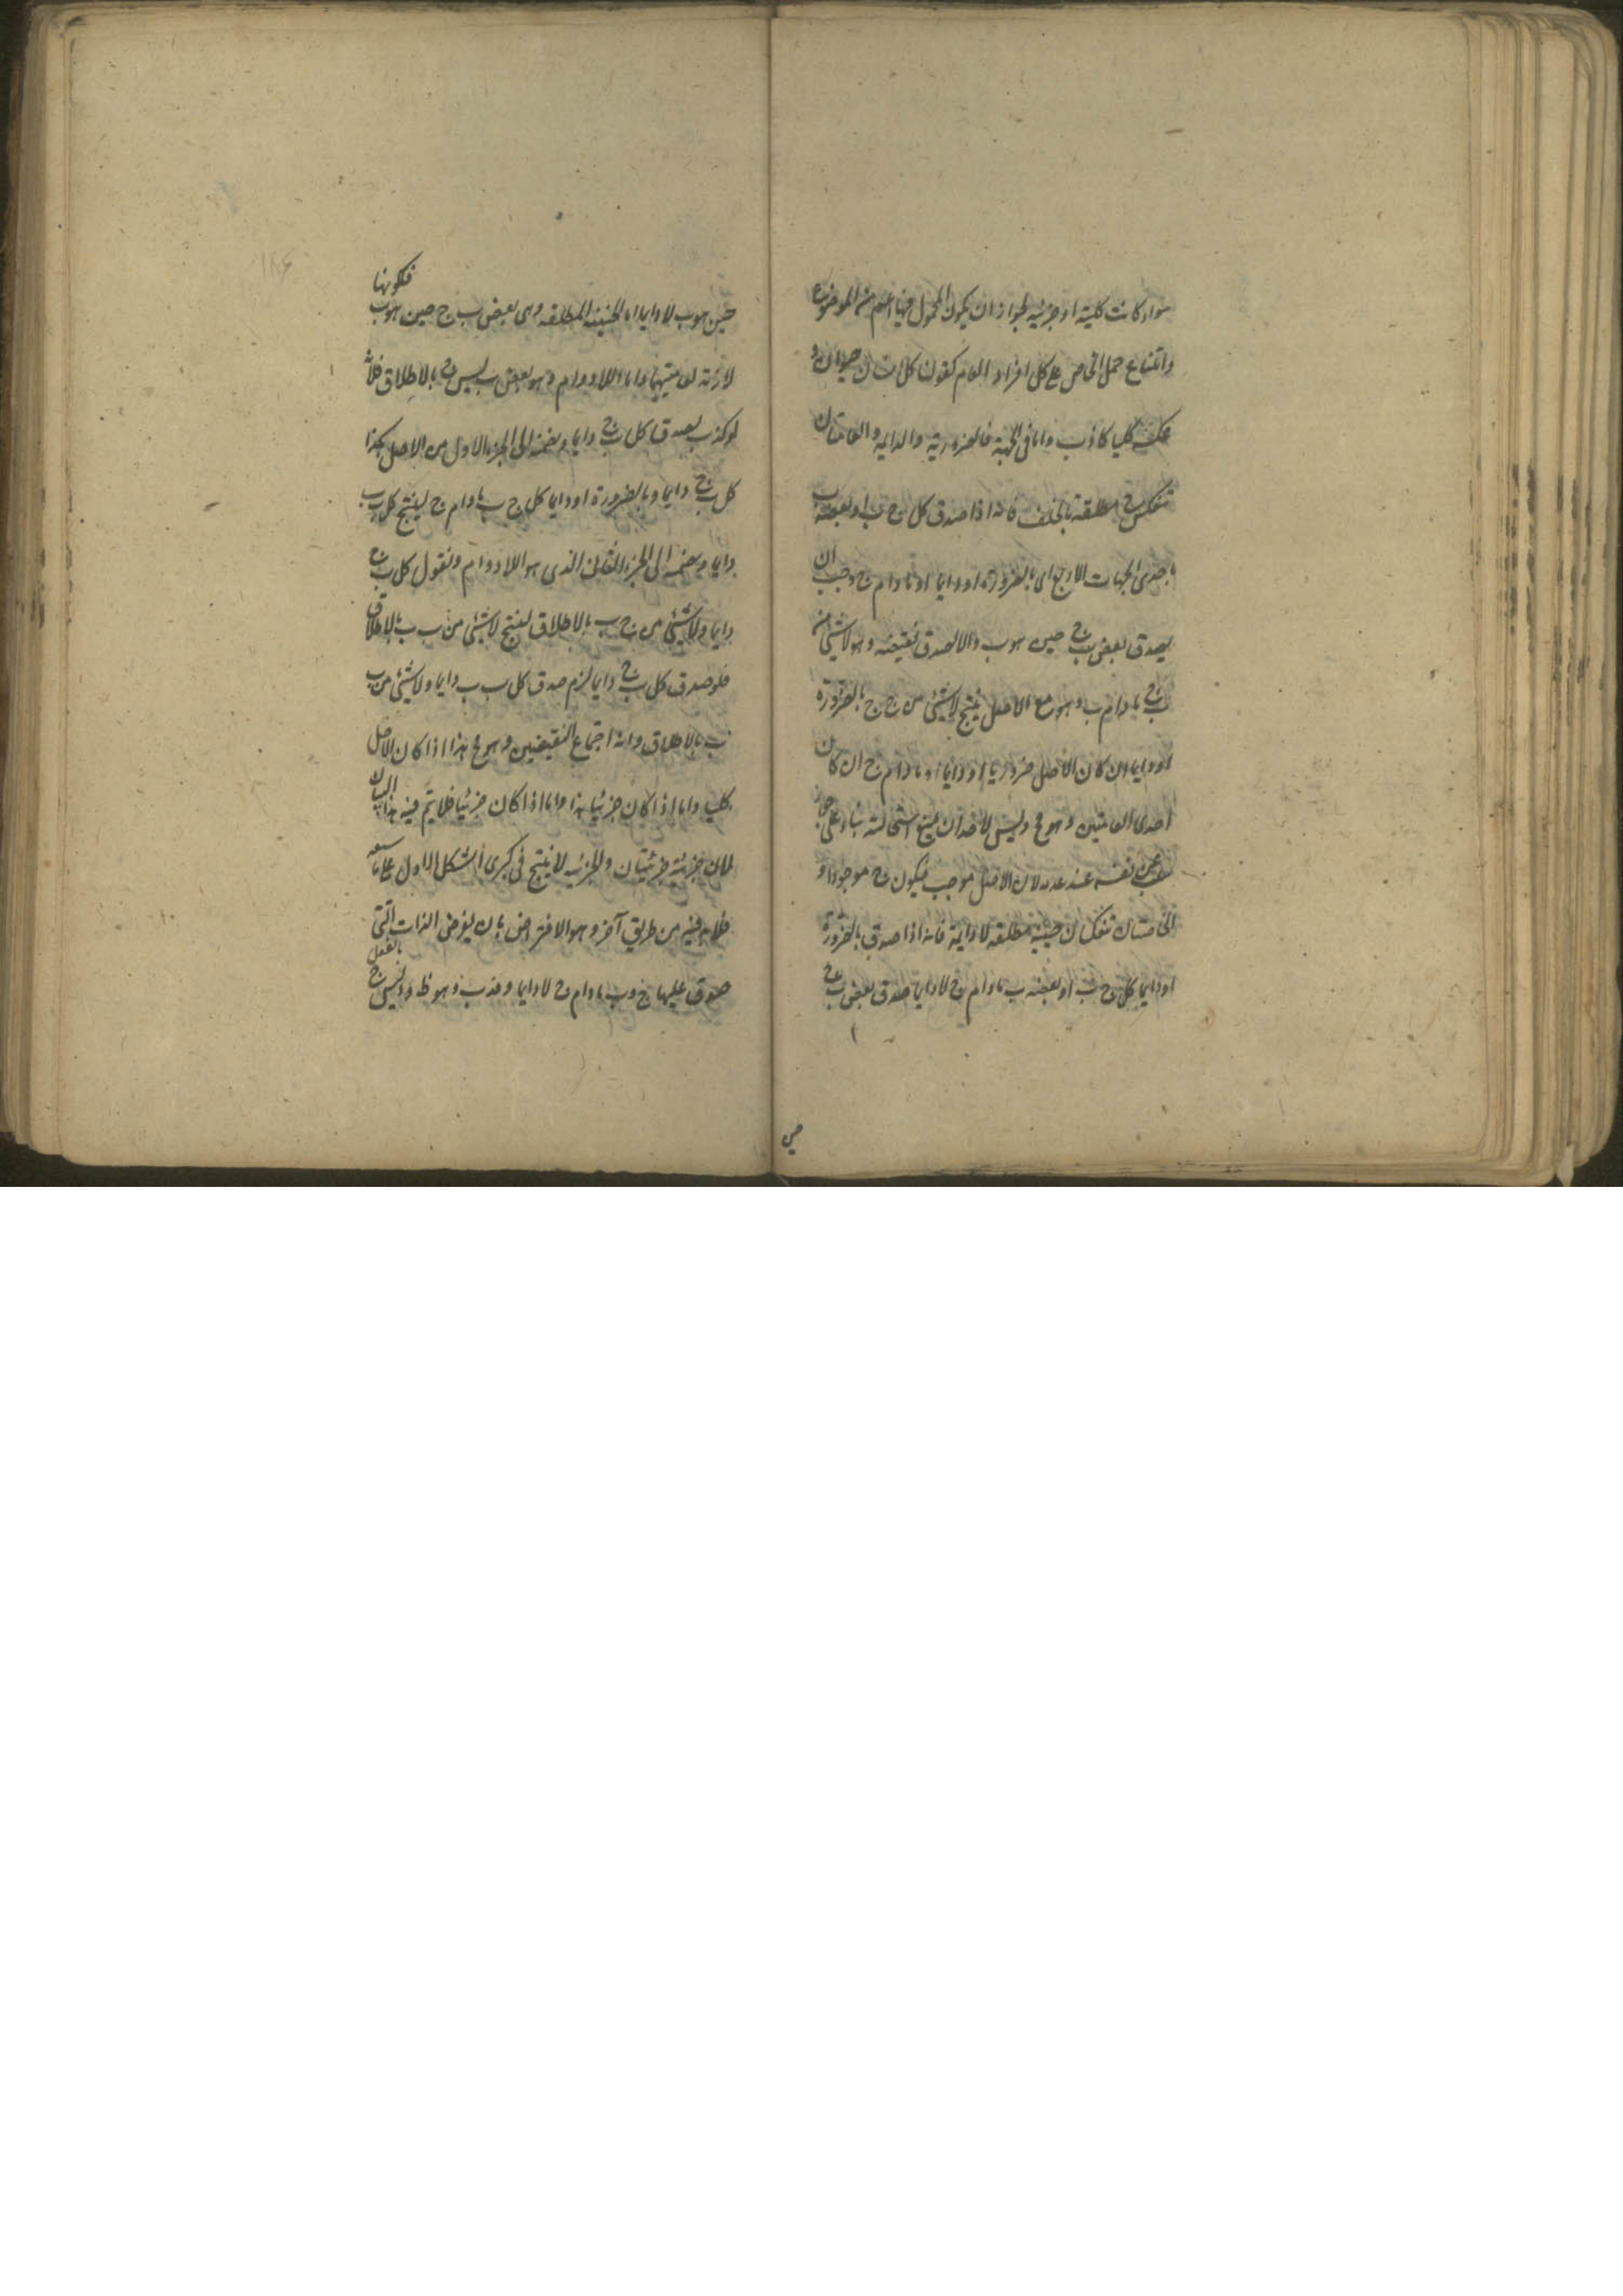 سواء كانت كلية او جزئية لجواز ان يكون المحمول فيها اعم من الموضوع
وامتناع حمل الخاص على كل افراد العام كقولنا كل انسان حيوان و
عكسه كليا كاذب واما فى الجهة فالضرورية والدايمة والعامتان
تنعكس حينية مطلقة بالخلف فانه اذا صدق كل ج ب او بعضه ب
باحدى الجهات الاربع اى بالضرورة او دايما او مادام ج وجب ان
يصدق بعض ب ج حين هو ب والا لصدق نقيضه وهو لا شئ من
ب ج مادام ب وهو مع الاصل ينتج لا شئ من ج ج بالضرورة
او دايما ان كان الاصل ضروريا او دايما او مادام ج ان كان
احدى العامتين وهو مح وليس لاحد ان يمنع استحالته بناء على جواز
سلب الشئ عن نفسه عند عدمه لان الاصل موجب فيكون ج موجودا و
الخاصتان تنعكسان حينية مطلقة لا دايمة فانه اذا صدق بالضرورة
او دايما كل ج ب او بعضه ب مادام ج لا دايما صدق بعض ب ج
حين
فلكونها
حين هو ب لا دايما اما الحينية المطلقة وهى بعض ب ج حين هو ب
لازمة لعامتيهما واما اللادوام وهو بعض ب ليس ج بالاطلاق فلانه
لو كذب لصدق كل ب ج دايما ونضمه الى الجزء الاول من الاصل هكذا
كل ب ج دايما وبالضرورة او دايما كل ج ب مادام ج لينتج كل ب ب
دايما ونضمه الى الجزء الثانى الذى هو اللادوام ونقول كل ب ج
دايما ولا شئ من ج ب بالاطلاق لينتج لا شئ من ب ب بالاطلاق
فلو صدق كل ب ج دايما لزم صدق كل ب ب دايما ولا شئ من ب
ب بالاطلاق وانه اجتماع النقيضين وهو مح هذا اذا كان الاصل
كليا واما اذا كان جزئيا هذا واما اذا كان جزئيا فلا يتم فيه هذا البيان
لان جزئيه جزئيتان والجزئية لا ينتج فى كبرى الشكل الاول على ما
فلابد فيه من طريق آخر وهو الافتراض بان يفرض الذات التى
بالفعل
صدق عليها ج وب مادام ج لا دايما و فد ب وهو ظ و د ليس ج